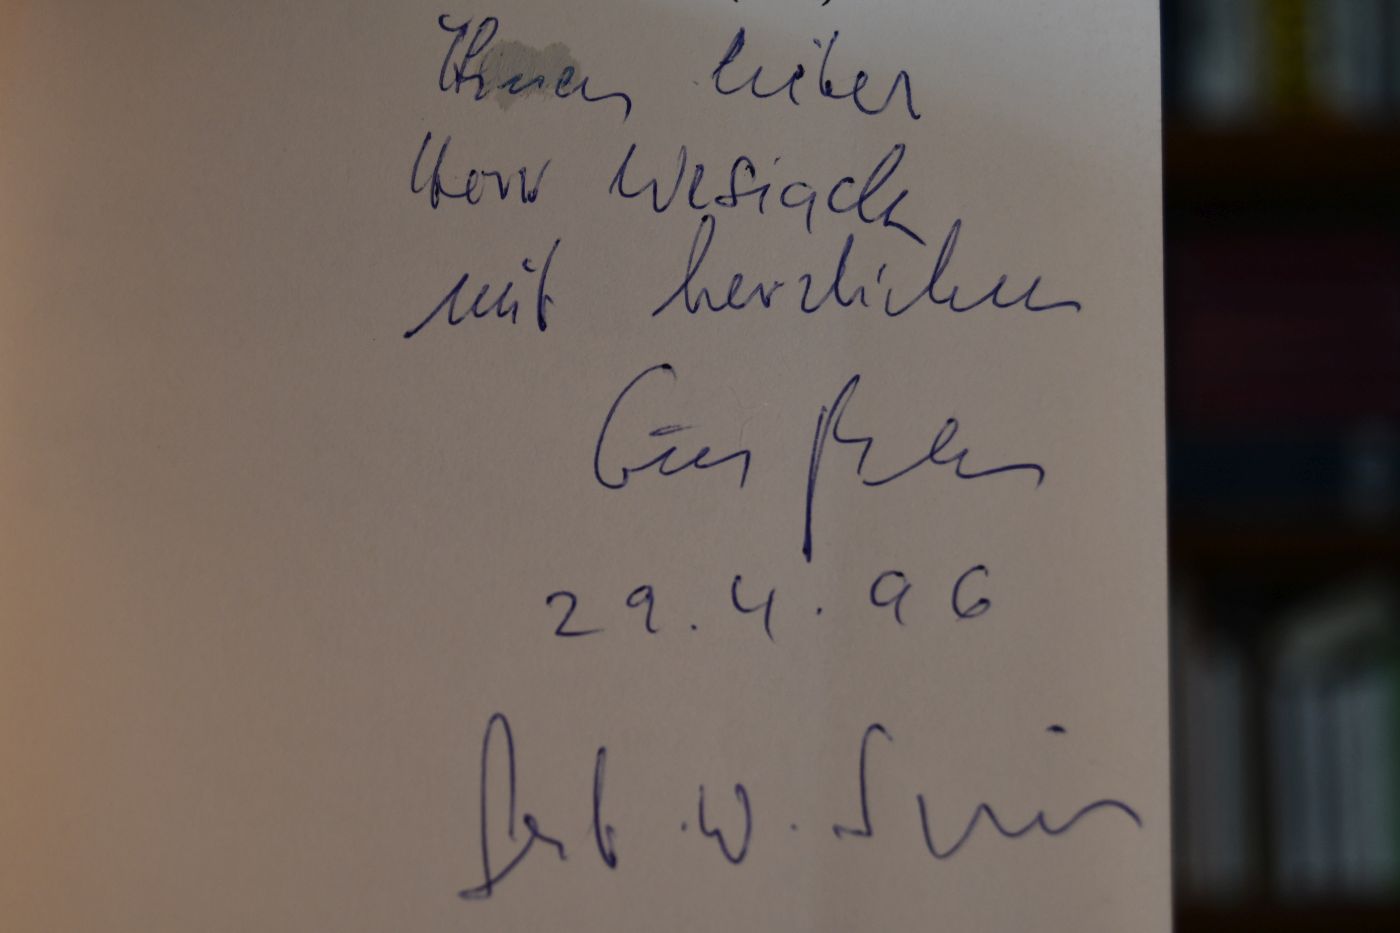 Ihnen, lieber
Herr Wesiack
mit herzlichen
Grüßen
29.4.96
W. S